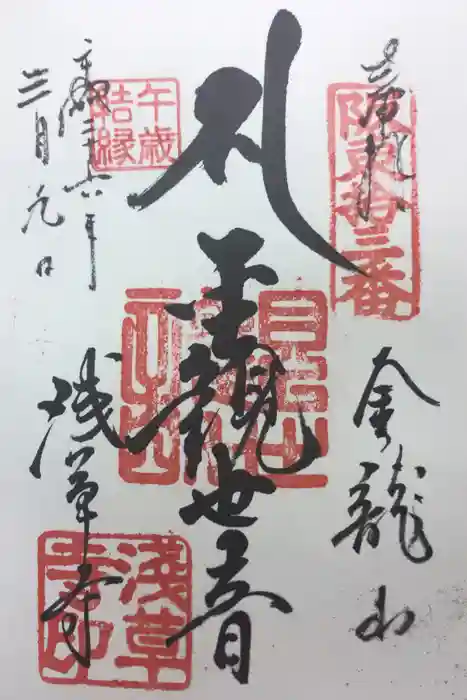 奉拝
阪東拾三番
金龍山
聖観世音
午歳
結縁
平成二十六年
三月九日
浅草寺
淺草
寺印